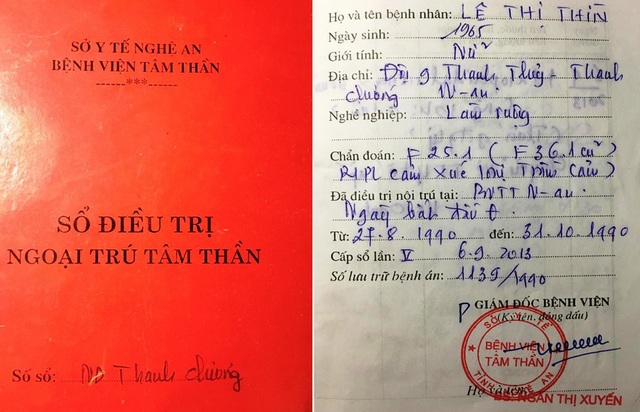 SỞ Y TẾ NGHỆ AN
BỆNH VIỆN TÂM THẦN
------***------
SỔ ĐIỀU TRỊ
NGOẠI TRÚ TÂM THẦN
Số sổ: Thanh chương
Họ và tên bệnh nhân: LÊ THỊ THÌN
Ngày sinh: 1965
Giới tính: Nữ
Địa chỉ: Đội 9 Thanh Thủy - Thanh
chương N-an
Nghề nghiệp: Làm ruộng
Chẩn đoán: F 25.1 ( F 36.1 cũ )
RLPL cảm xúc loại trầm cảm )
Đã điều trị nội trú tại: BVTT N-an.
Ngày bắt đầu
Từ: 27-8. 1990 đến: 31. 10. 1990
Cấp sổ lần: V 6.9. 2013
Số lưu trữ bệnh án: 1139/1990
P GIÁM ĐỐC BỆNH VIỆN
(Ký tên, đóng dấu)
SỞ Y TẾ
BỆNH VIỆN
TÂM THẦN
TỈNH NGHỆ AN
Họ và tên:
BS. NGÂN THỊ XUYẾN